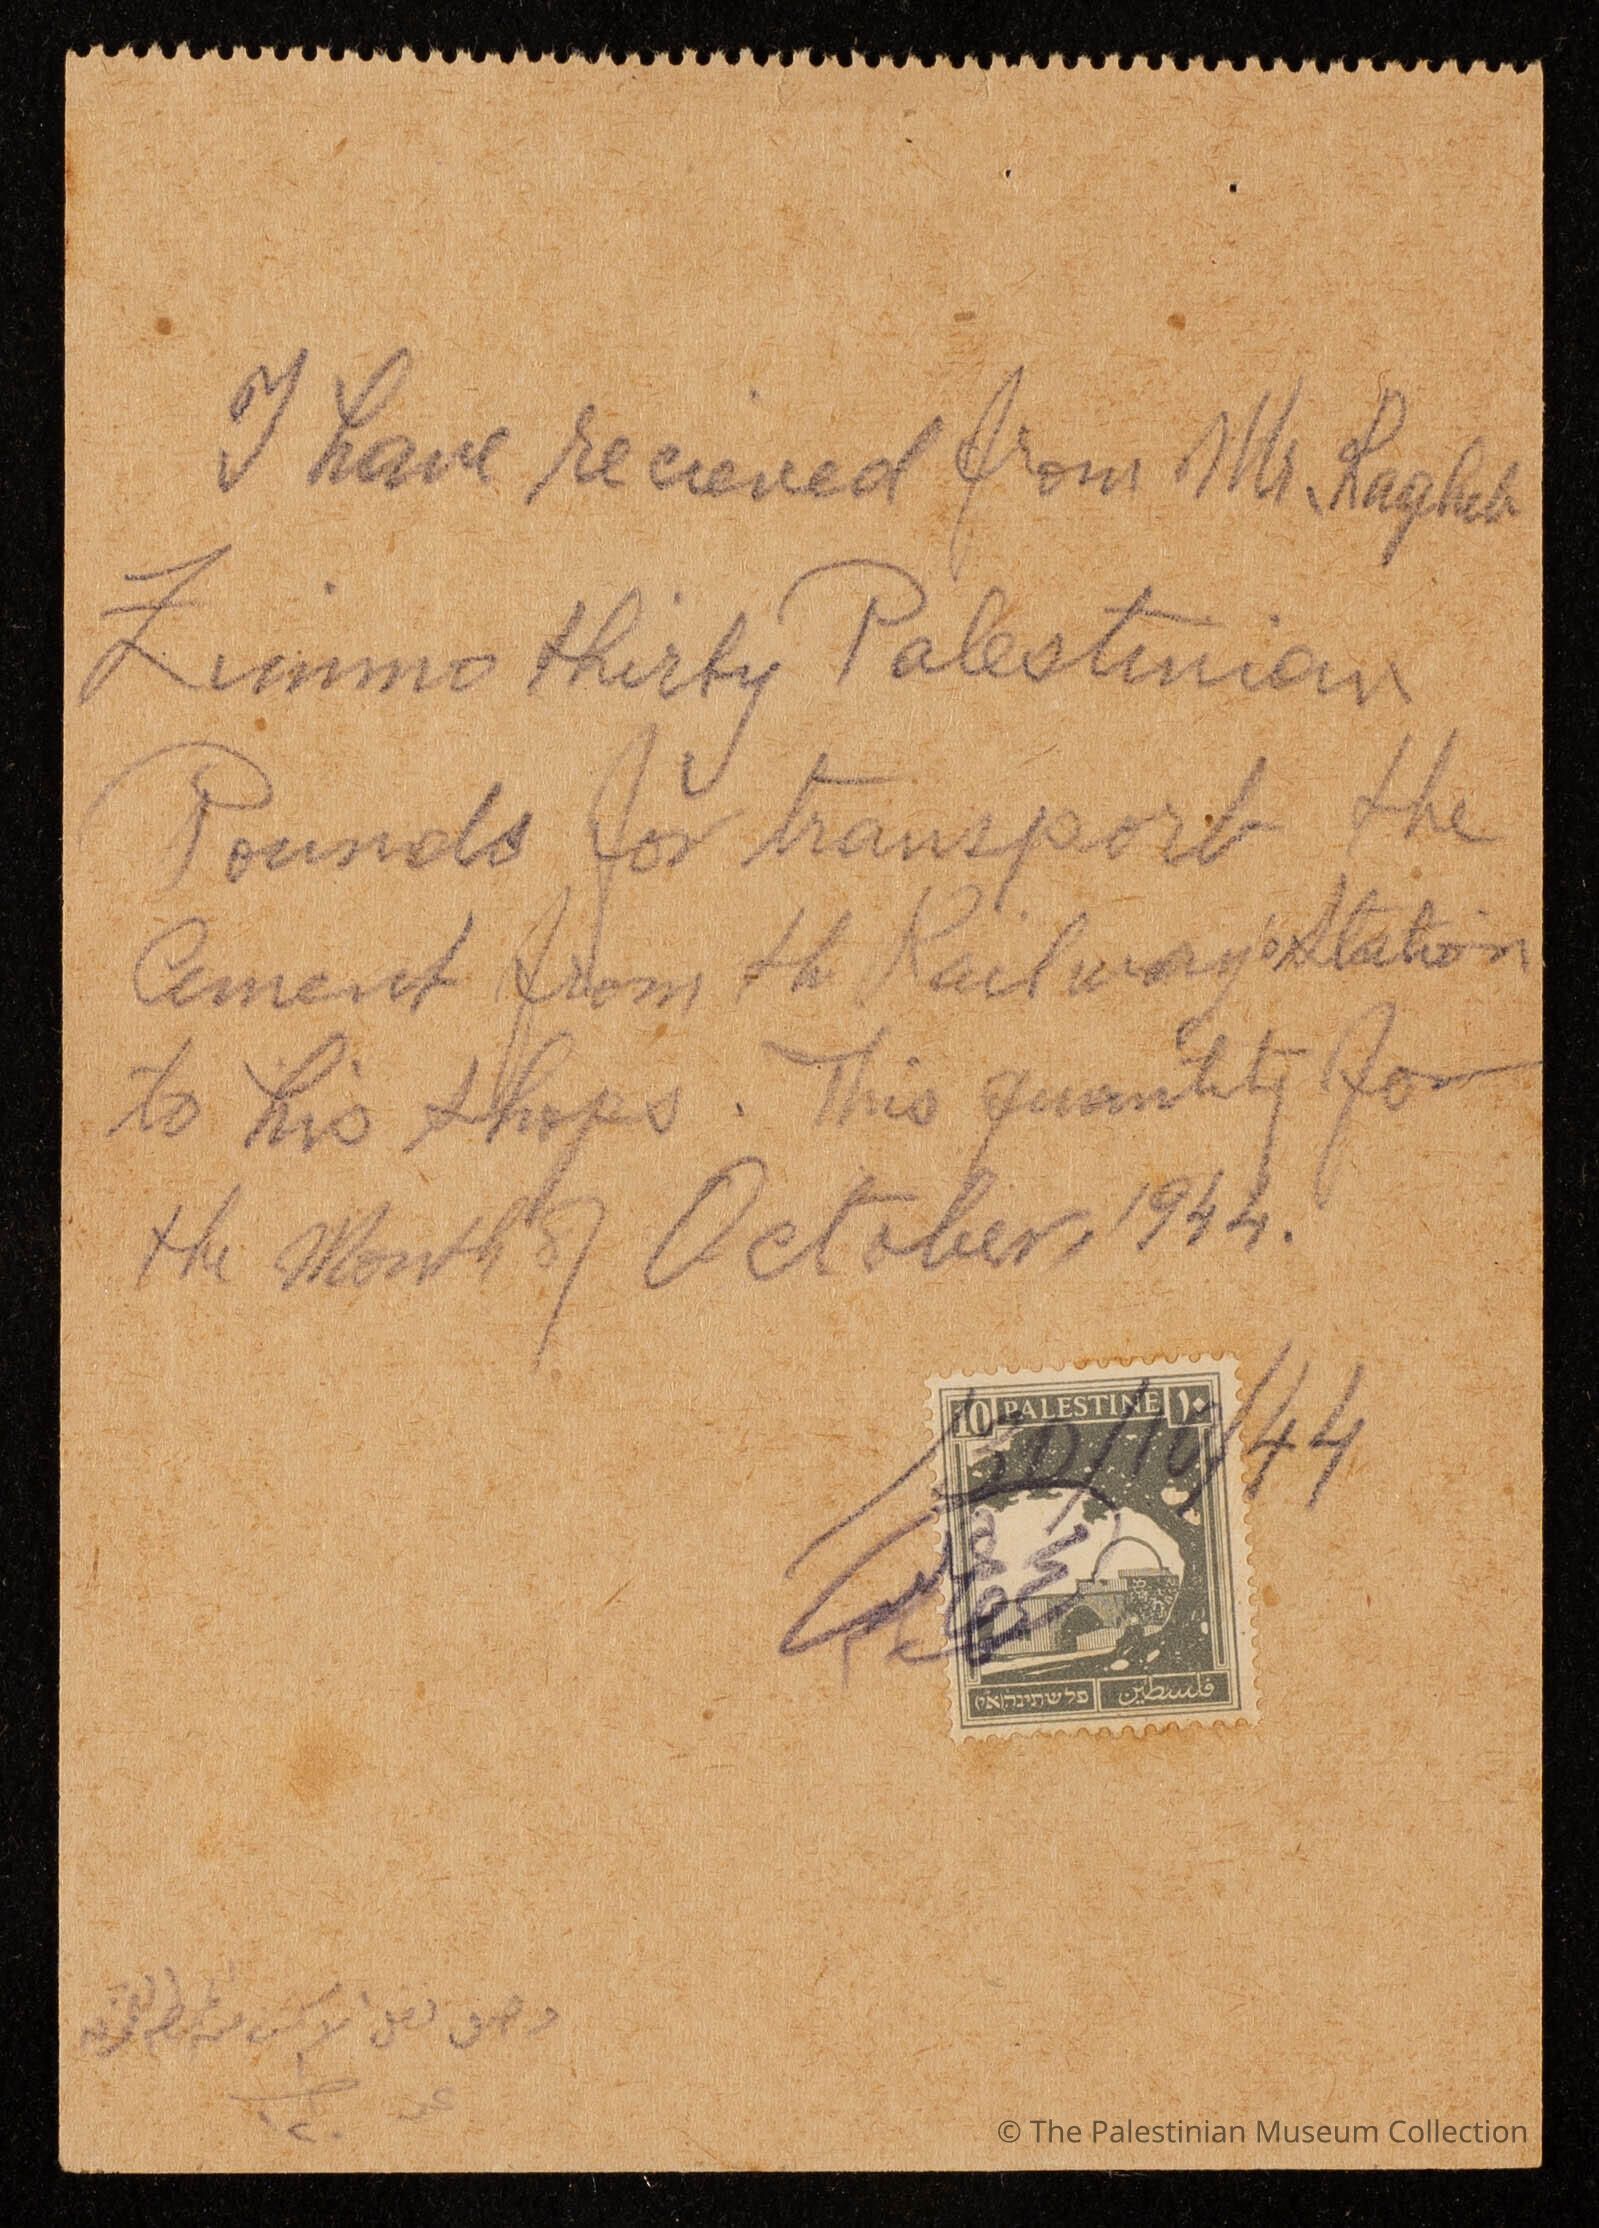 I have recieved from Mr. Ragheb
Zimmo thirty Palestinian
Pounds for transport the
Cement from th Railway's Station
to his shops. This quantity for
the Month of October, 1944.
30/10/44
10 PALESTINE ١٠
פלשתינה(א״י) فلسطين
وصل نقل الاسمنت
© The Palestinian Museum Collection